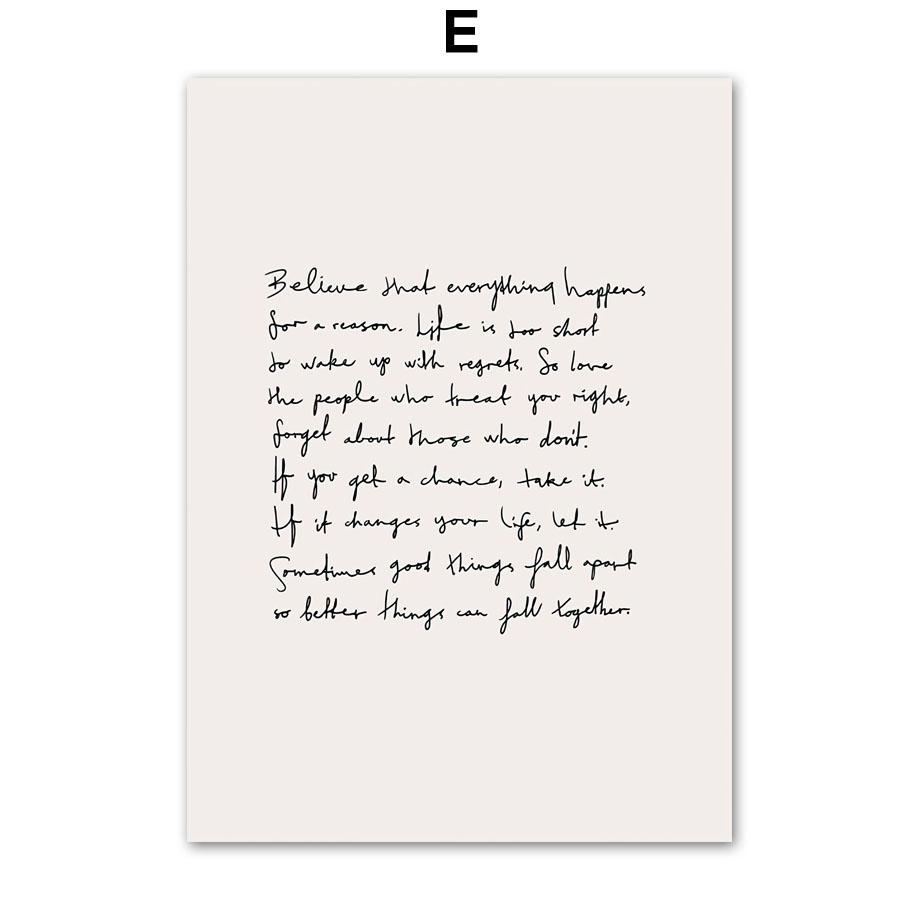 E
Believe that everything happens
for a reason. Life is too short
to wake up with regrets. So love
the people who treat you right,
forget about those who don't.
If you get a chance, take it.
If it changes your life, let it.
Sometimes good things fall apart
so better things can fall together.